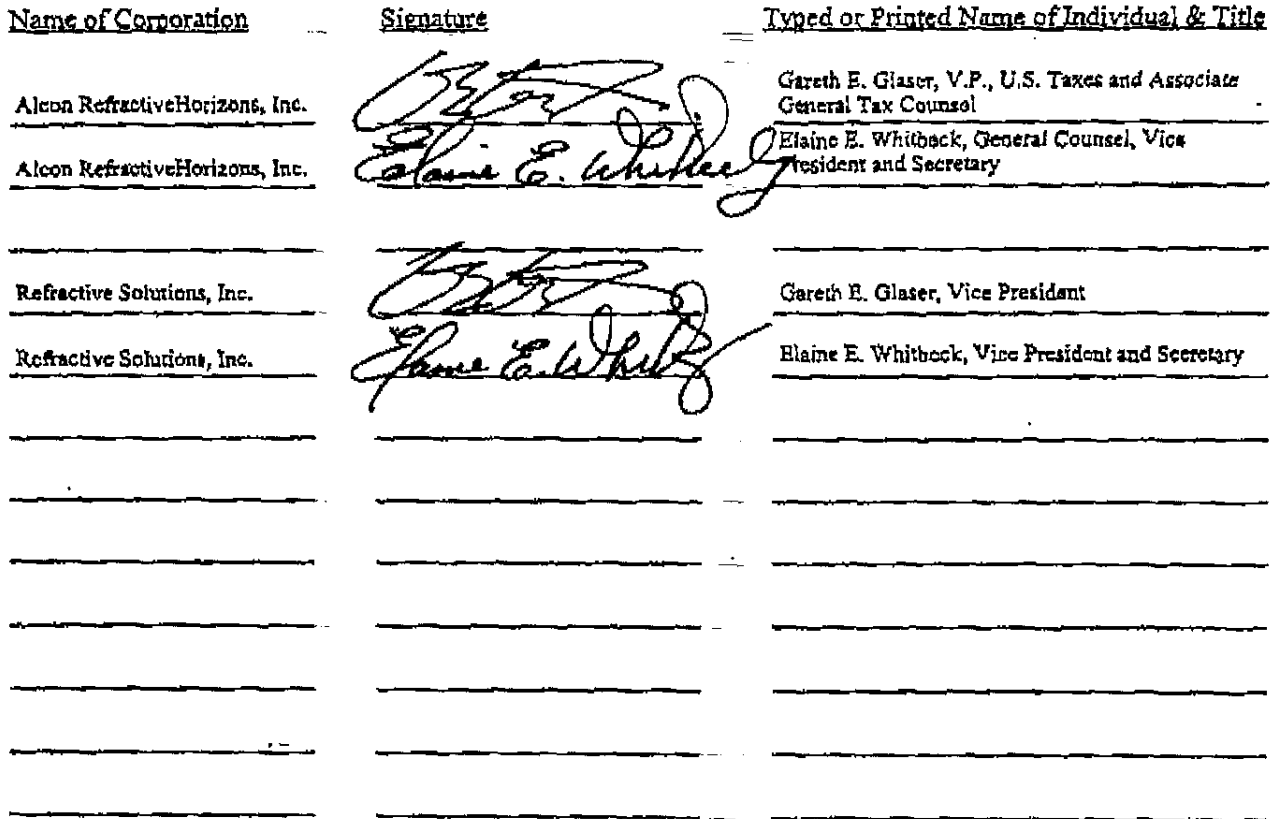 Name of Corporation Signature Typed or Printed Name of Individual & Title
Alcon RefractiveHorizons, Inc. Gareth E. Glaser, V.P., U.S. Taxes and Associate
General Tax Counsel
Alcon RefractiveHorizons, Inc. Elaine E. Whitbeck Elaine E. Whitbeck, General Counsel, Vice
President and Secretary
Refractive Solutions, Inc. Gareth E. Glaser, Vice President
Refractive Solutions, Inc. Elaine E. Whitbeck Elaine E. Whitbeck, Vice President and Secretary